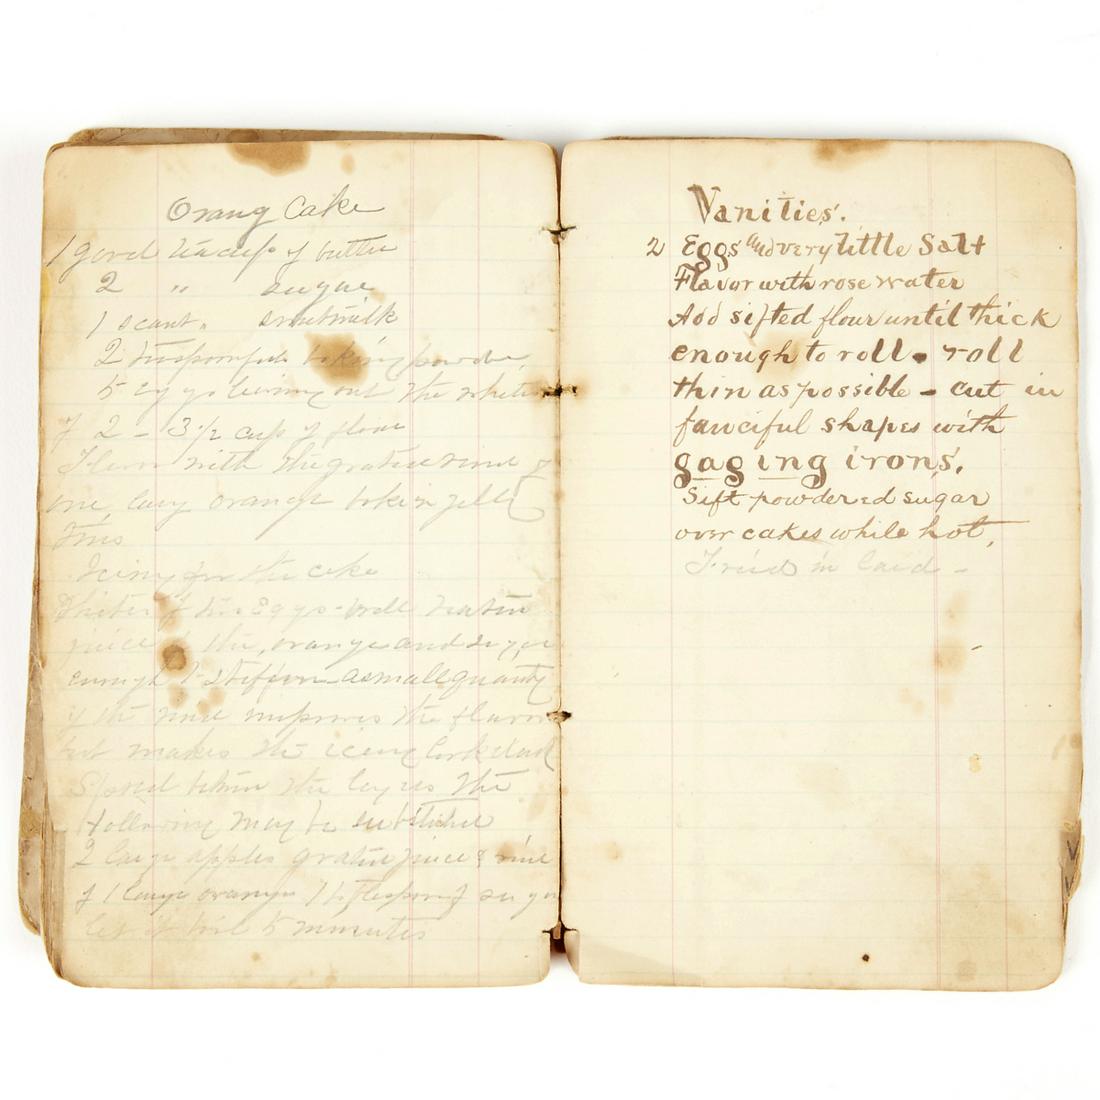 Orang Cake
1 good teacups of butter
2 " sugar
1 scant " sweetmilk
2 teaspoonfuls baking powder
5 eggs leaving out the whites
of 2 - 3 1/2 cups of flour
Flavor with the grated rind of
one large orange bake in jelly
Tins
Iceing for the cake
Whites of two Eggs - well beaten
juice of the orange and sugar
enough to stiffen a small quantity
of the rind improves the flavor
but makes the iceing look dark
Spread between the layers The
Following may be substituted
2 large apples grated juice & rind
of 1 large orange 1 of sugar
let it boil 5 minutes
Vanities.
2 Eggs and very little Salt
Flavor with rose water
Add sifted flour until thick
enough to roll. roll
thin as possible - cut in
fanciful shapes with
gaging irons.
Sift powdered sugar
over cakes while hot,
Fried in lard -